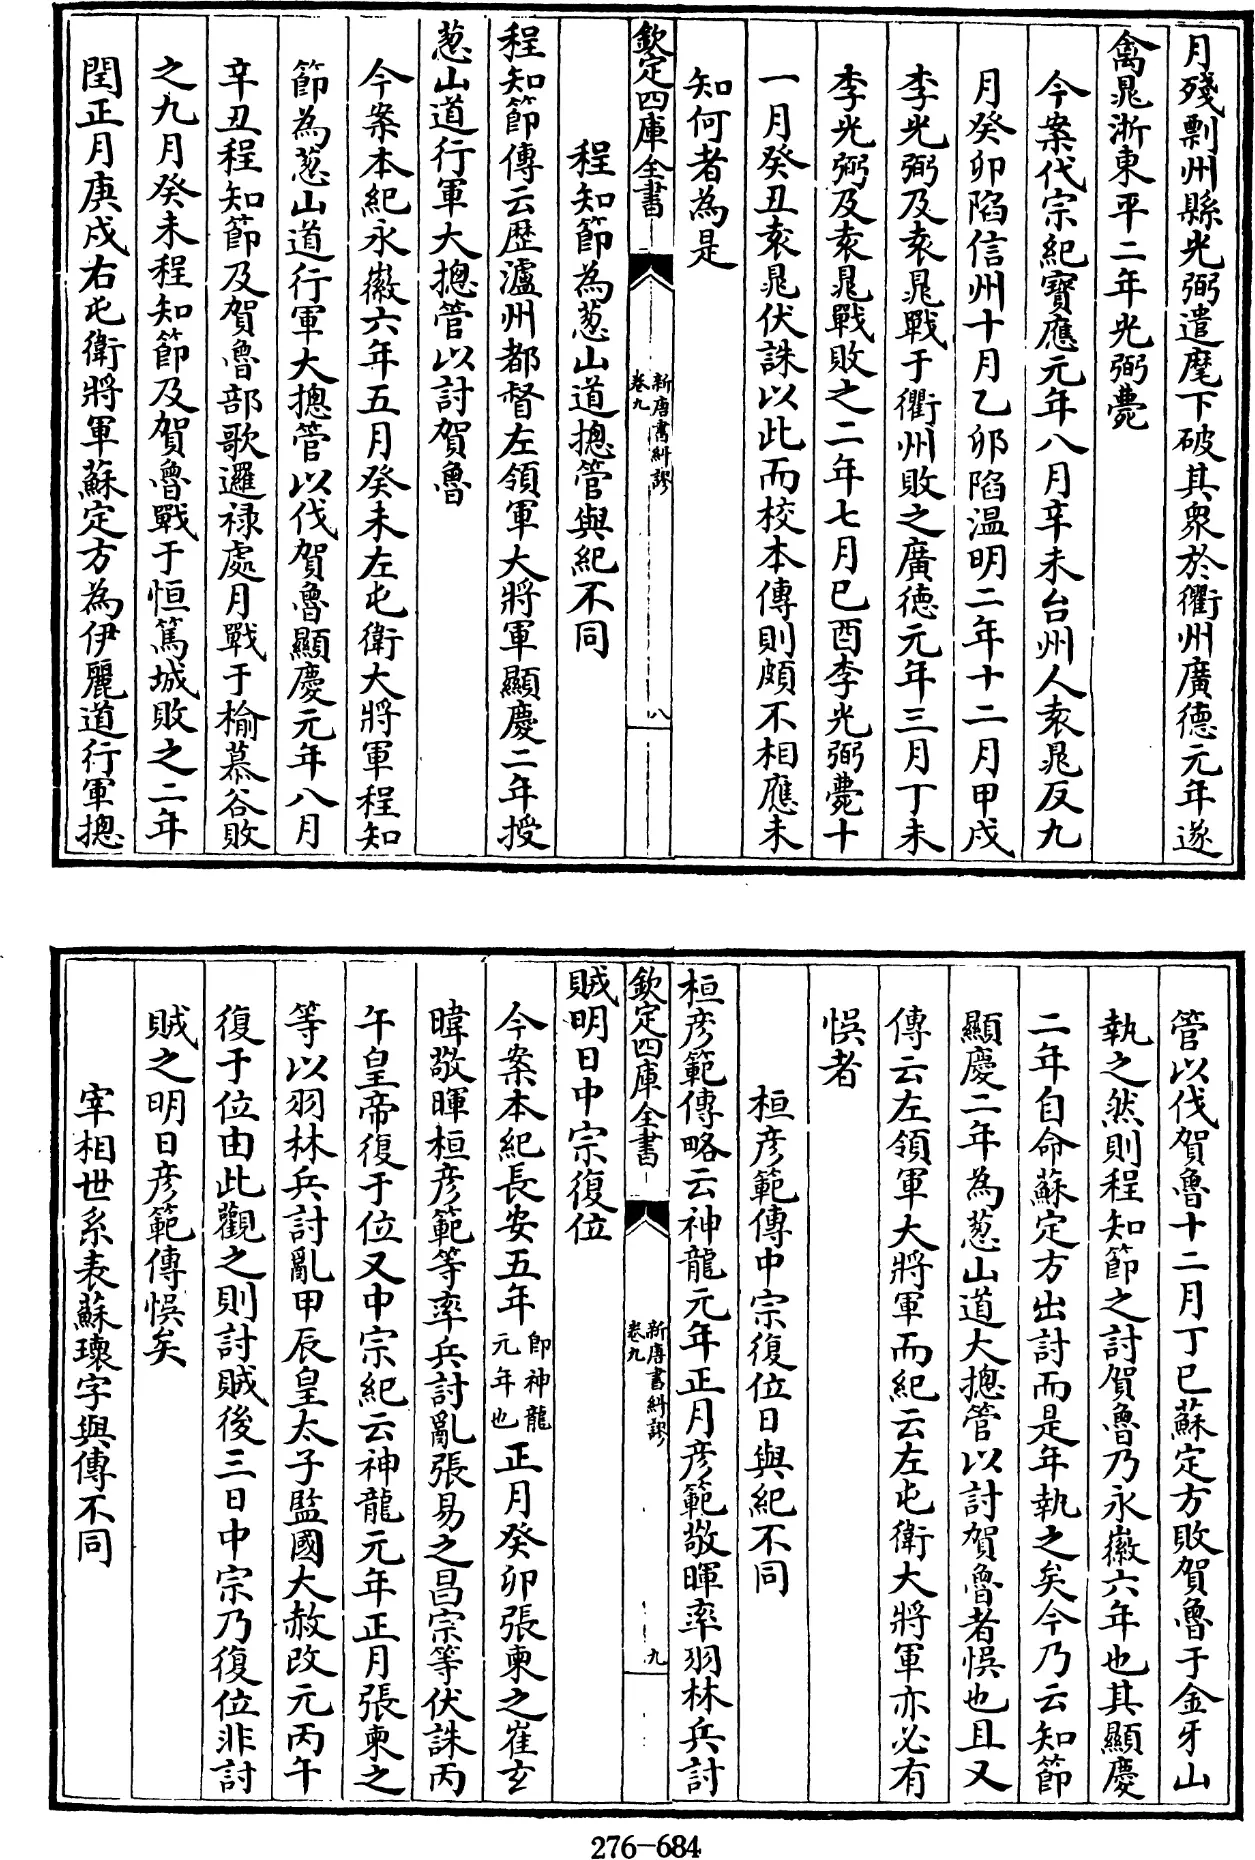 月殘剽州縣光弼遣麾下破其衆於衢州廣德元年遂
禽晁浙東平二年光弼薨
今案代宗紀寶應元年八月辛未台州人袁晁反九
月癸卯陷信州十月乙卯陷温明二年十二月甲戌
李光弼及袁晁戰于衢州敗之廣徳元年三月丁未
李光弼及袁晁戰敗之二年七月已酉李光弼薨十
一月癸丑袁晁伏誅以此而校本傳則頗不相應未
知何者為是
欽定四庫全書
新唐書糾謬
卷九
八
程知節為葱山道摠管與紀不同
程知節傳云歴瀘州都督左領軍大將軍顯慶二年授
葱山道行軍大摠管以討賀魯
今案本紀永徽六年五月癸未左屯衛大將軍程知
節為葱山道行軍大摠管以伐賀魯顯慶元年八月
辛丑程知節及賀魯部歌邏禄處月戰于榆慕谷敗
之九月癸未程知節及賀魯戰于恒篤城敗之二年
閏正月庚戍右屯衛將軍蘇定方為伊麗道行軍摠
管以伐賀魯十二月丁巳蘇定方敗賀魯于金牙山
執之然則程知節之討賀魯乃永徽六年也其顯慶
二年自命蘇定方出討而是年執之矣今乃云知節
顯慶二年為葱山道大摠管以討賀魯者悞也且又
傳云左領軍大將軍而紀云左屯衛大將軍亦必有
悞者
桓彦範傳中宗復位日與紀不同
桓彦範傳略云神龍元年正月彦範敬暉率羽林兵討
欽定四庫全書
新唐書糾謬
卷九
九
賊明日中宗復位
今案本紀長安五年即神龍元年也正月癸卯張柬之崔玄
暐敬暉桓彦範等率兵討亂張易之昌宗等伏誅丙
午皇帝復于位又中宗紀云神龍元年正月張柬之
等以羽林兵討亂甲辰皇太子監國大赦改元丙午
復于位由此觀之則討賊後三日中宗乃復位非討
賊之明日彦範傳悞矣
宰相世系表蘇瓌字與傳不同
276-684